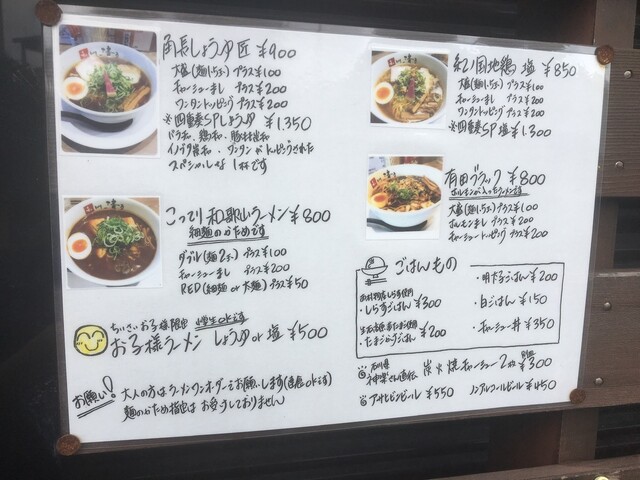 角長しょうゆ匠 ¥900
大盛(麺1.5玉)プラス¥100
チャーシューまし プラス¥200
ワンタントッピング プラス¥200
※四重奏SPしょうゆ ¥1,350
バラ和、鶏和、豚
ワンタンがトッピングされた
スペシャルな1杯です
こってり和歌山ラーメン¥800
細麺のかためです
ダブル(麺2玉) プラス¥100
チャーシューまし プラス¥200
RED(細麺or太麺) プラス¥50
ちいさいお子様限定 小学生okです
お子様ラーメン しょうゆor塩 ¥500
お願い!
大人の方はラーメンワンオーダーでお願いします(追食okです)
麺のかため指定は お受けしておりません
紀ノ国地鶏 塩 ¥850
大盛(麺1.5玉)プラス¥100
チャーシューまし プラス¥200
ワンタントッピング プラス¥200
※四重奏SP塩 ¥1,300
有田ブラック ¥800
ホルモンが入ったラーメンです
大盛(麺1.5玉)プラス¥100
ホルモンまし プラス¥200
チャーシュートッピング プラス¥200
ごはんもの
しらす使用
・しらすごはん ¥300
たまご使用
・たまごかけごはん ¥200
・明太ごはん ¥200
・白ごはん ¥150
・チャーシュー丼 ¥350
石川県
直伝 炭火焼チャーシュー2枚 ¥300
アサヒビンビール ¥550
ノンアルコールビール ¥450